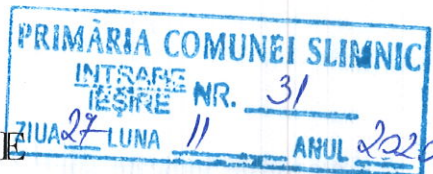 PRIMĂRIA COMUNEI SLIMNIC
INTRARE
IEȘIRE NR. 31
ZIUA 27 LUNA 11 ANUL 2020
E